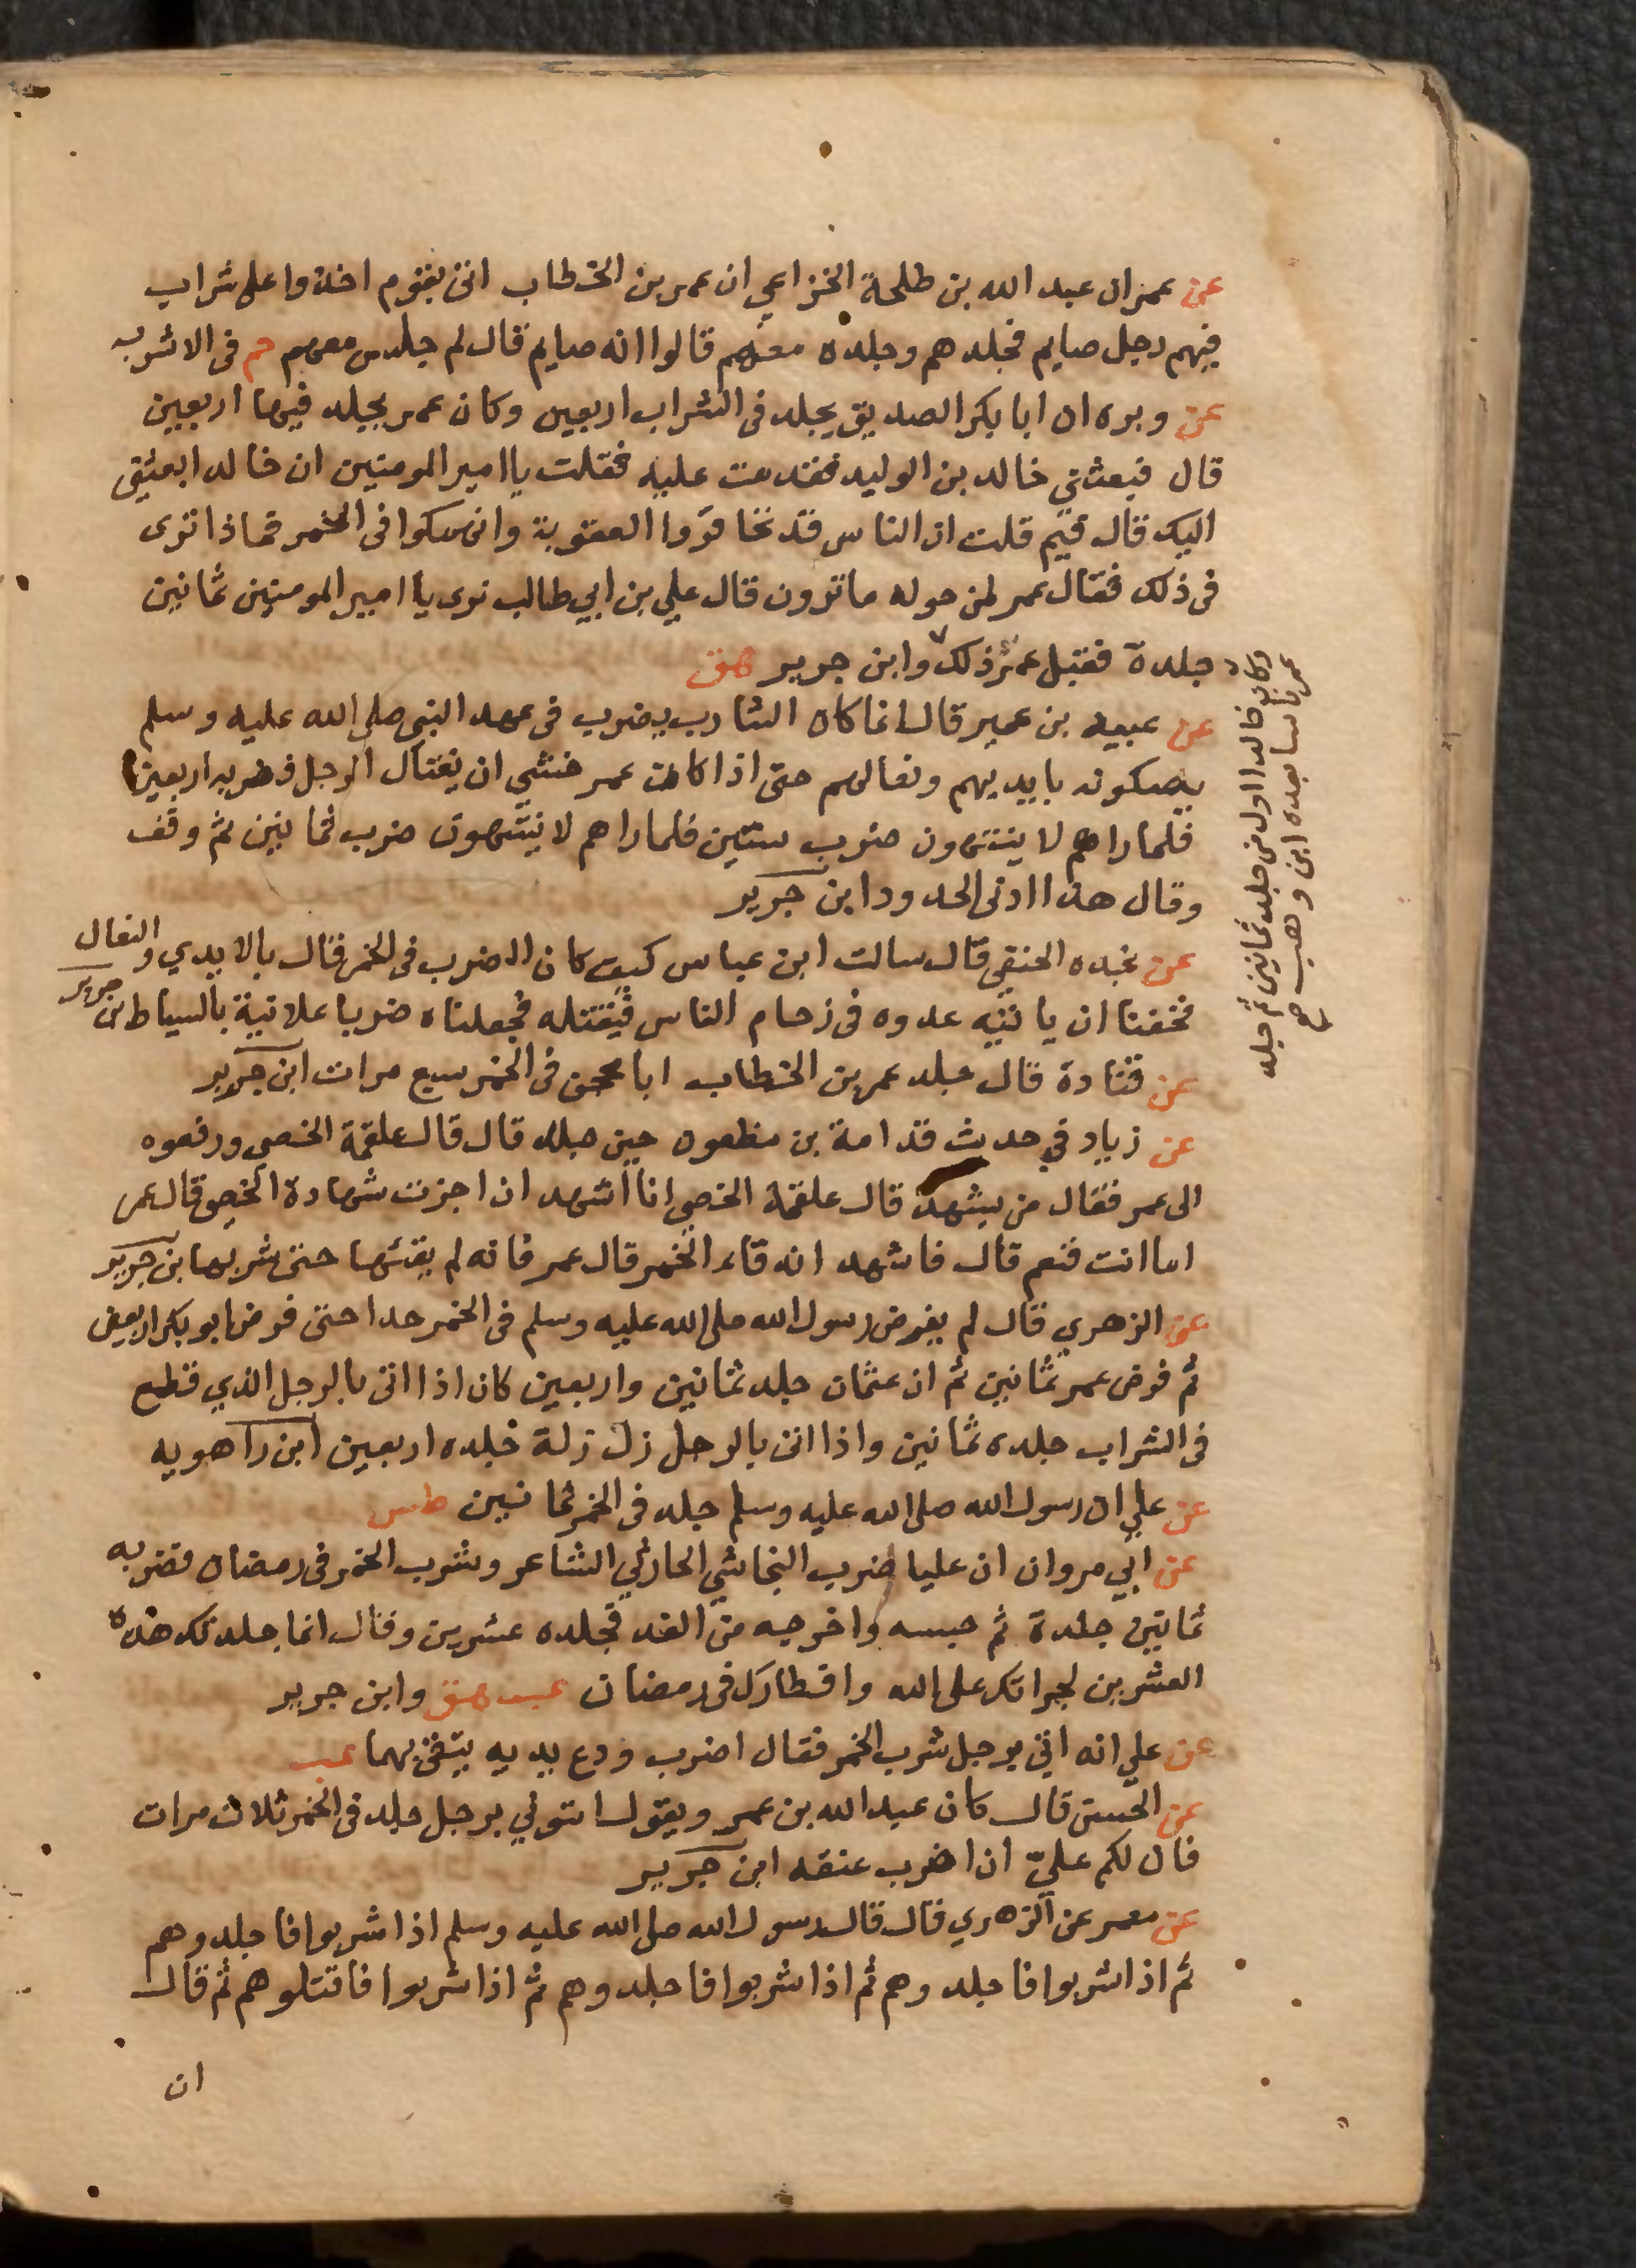 عن عمران عبد الله بن طلحة الخزاعي ان عمر بن الخطاب اتى بقوم اخذوا على شراب
فيهم رجل صايم فجلدهم وجلده معهم قالوا انه صايم قال لم جلس معهم حم فى الاشربه
عن وبره ان ابا بكر الصديق يجلد فى الشراب اربعين وكان عمر يجلد فيها اربعين
قال فبعثني خالد بن الوليد فقدمت عليه فقلت يا امير المومنين ان خالد ابعثنى
اليك قال فيم قلت ان الناس قد تخاقروا العقوبة وانهمكوا فى الخمر فماذا ترى
فى ذلك فقال عمر لمن حوله ما ترون قال علي بن ابي طالب نرى يا امير المومنين ثمانين
جلدة فقبل عمر ذلك وابن جرير هق
وكان خالد اول من جلد ثمانين ثم جلد
عمر ناسا بعده ابن وهب صح
عن عبيد بن عمير قال انما كان الشارب يضرب فى عهد النبى صلى الله عليه وسلم
يصكونه بايديهم ونعالهم حتى اذا كان عمر خشي ان يغتال الرجل فضربه اربعين
فلما راهم لا ينتهون ضرب ستين فلما راهم لا ينتهون ضرب ثمانين ثم وقف
وقال هذا ادنى الحدود ابن جرير
عن نجده الحنفي قال سالت ابن عباس كيف كان الضرب فى الخمر قال بالايدي والنعال
فخفنا ان ياتيه عدوه فى زحام الناس فيقتله فجعلناه ضربا علانية بالسياط بن جرير
عن قتادة قال جلد عمر بن الخطاب ابا محجن فى الخمر سبع مرات ابن جرير
عن زياد في حديث قدامة بن مظعون حين جلد قال قال علقمة الخصي ورفعوه
الى عمر فقال من يشهد قال علقمة الخصي انا اشهد ان اجزت شهادة الخصي قال عمر
اما انت فنعم قال فاشهد انه قاء الخمر قال عمر فانه لم يقئها حتى شربها بن جرير
عن الزهري قال لم يفرض رسول الله صلى الله عليه وسلم فى الخمر حدا حتى فرض ابو بكر اربعين
ثم فرض عمر ثمانين ثم ان عثمان جلد ثمانين واربعين كان اذا اتى بالرجل الذي قطع
فى الشراب جلده ثمانين واذا اتى بالرجل زل زلة جلده اربعين ابن راهويه
عن علي ان رسول الله صلى الله عليه وسلم جلد فى الخمر ثمانين طس
عن ابي مروان ان عليا ضرب النجاشي الحارثي الشاعر وشرب الخمر فى رمضان فضربه
ثمانين جلدة ثم حبسه واخرجه من الغد فجلده عشرين وقال انما جلدتك هذه
العشرين لجراتك على الله وافطارك فى رمضان عب هق وابن جرير
عن علي انه اتي برجل شرب الخمر فقال اضرب ودع يديه يتقى بهما عب
عن الحسن قال كان عبد الله بن عمر ويقول ايتوني برجل جلد فى الخمر ثلاث مرات
فان لكم عليّ ان اضرب عنقه ابن جرير
عن معمر عن الزهري قال قال رسول الله صلى الله عليه وسلم اذا شربوا فاجلدوهم
ثم اذا شربوا فاجلدوهم ثم اذا شربوا فاجلدوهم ثم اذا شربوا فاقتلوهم ثم قال
ان